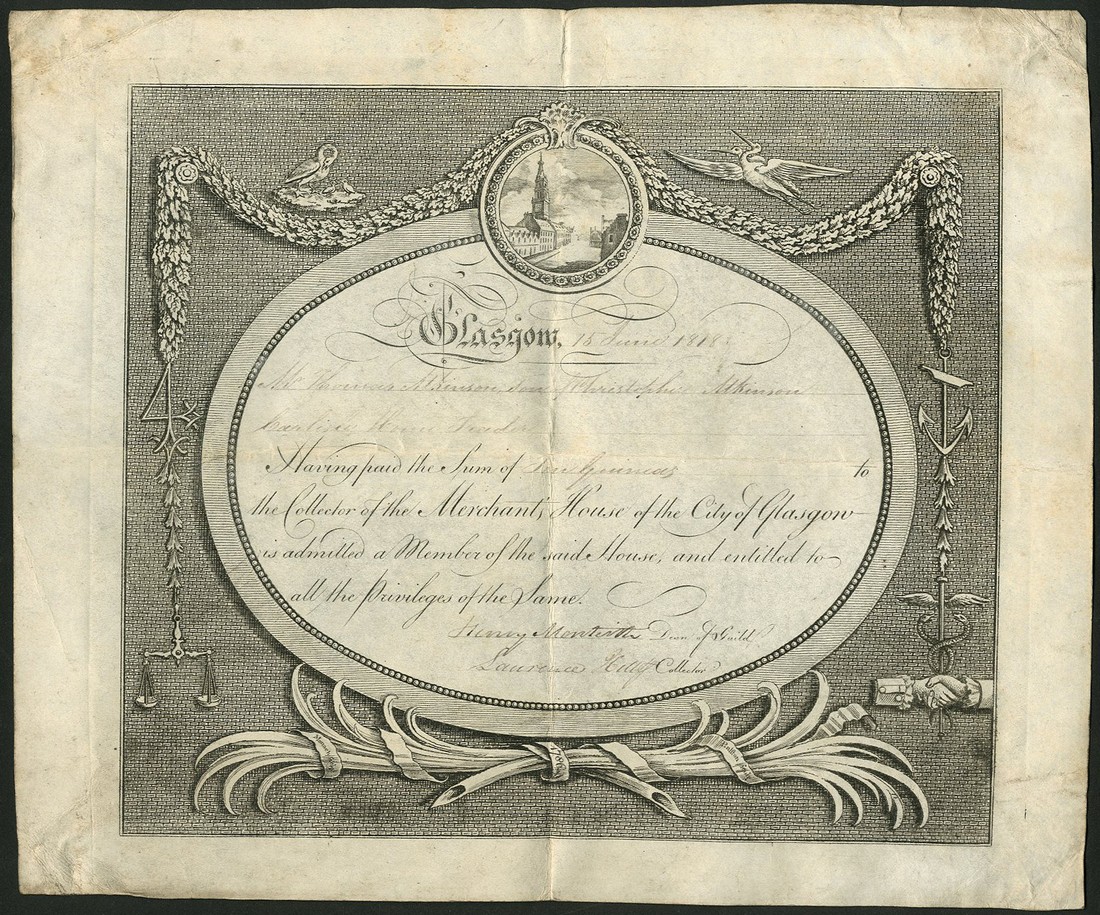 Glasgow, 15 June 1818
Mr. Thomas Atkinson, Son of Christopher Atkinson
Carlisle Trader
Having paid the Sum of Ten Guineas to
the Collector of the Merchants House of the City of Glasgow
is admitted a Member of the said House, and entitled to
all the Privileges of the Same.
Henry Monteith Dean of Guild
Laurence Hill Collector